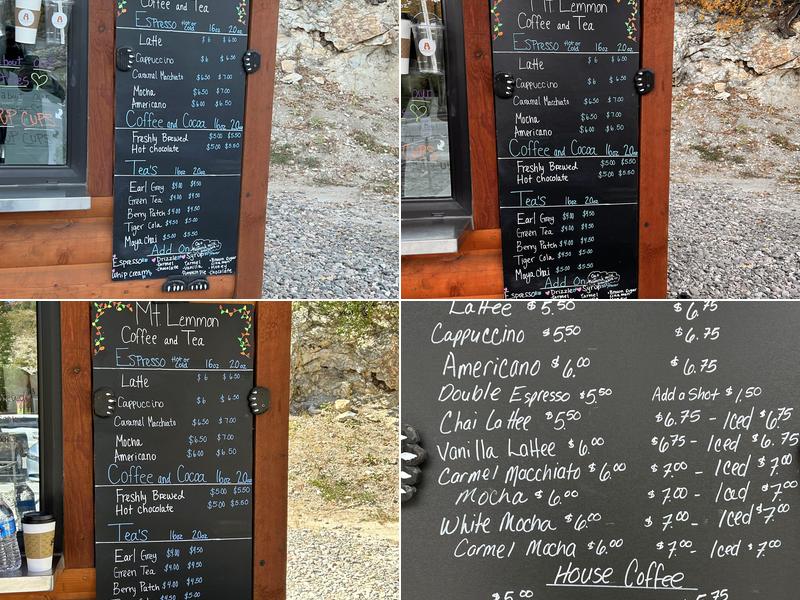 Coffee and Tea
Espresso Hot or Cold 16oz 20oz
Latte $6 $6.50
Cappuccino $6 $6.50
Caramel Macchiato $6.50 $7.00
Mocha $6.50 $7.00
Americano $6.00 $6.50
Coffee and Cocoa 16oz 20oz
Freshly Brewed $5.00 $5.50
Hot chocolate $5.00 $5.50
Tea's 16oz 20oz
Earl Grey $4.00 $4.50
Green Tea $4.00 $4.50
Berry Patch $4.00 $4.50
Tiger Cola $4.50 $5.00
Maya Chai $5.00 $5.50
Add On
Espresso Drizzle Syrup
Whip cream
Mt Lemmon
Coffee and Tea
Espresso Hot or Cold 16oz 20oz
Latte $6 $6.50
Cappuccino $6 $6.50
Caramel Macchiato $6.50 $7.00
Mocha $6.50 $7.00
Americano $6.00 $6.50
Coffee and Cocoa 16oz 20oz
Freshly Brewed $5.00 $5.50
Hot chocolate $5.00 $5.50
Tea's 16oz 20oz
Earl Grey $4.00 $4.50
Green Tea $4.00 $4.50
Berry Patch $4.00 $4.50
Tiger Cola $4.50 $5.00
Maya Chai $5.00 $5.50
Add On
Espresso Drizzle Syrup
Mt. Lemmon
Coffee and Tea
Espresso Hot or Cold 16oz 20oz
Latte $6 $6.50
Cappuccino $6 $6.50
Caramel Macchiato $6.50 $7.00
Mocha $6.50 $7.00
Americano $6.00 $6.50
Coffee and Cocoa 16oz 20oz
Freshly Brewed $5.00 $5.50
Hot chocolate $5.00 $5.50
Tea's 16oz 20oz
Earl Grey $4.00 $4.50
Green Tea $4.00 $4.50
Berry Patch $4.00 $4.50
Lattee $5.50 $6.75
Cappuccino $5.50 $6.75
Americano $6.00 $6.75
Double Espresso $5.50 Add a Shot $1.50
Chai Lattee $5.50 $6.75 - Iced $6.75
Vanilla Lattee $6.00 $6.75 - Iced $6.75
Carmel Macchiato $6.00 $7.00 - Iced $7.00
Mocha $6.00 $7.00 - Iced $7.00
White Mocha $6.00 $7.00 - Iced $7.00
Carmel Mocha $6.00 $7.00 - Iced $7.00
House Coffee
$5.00 5.75